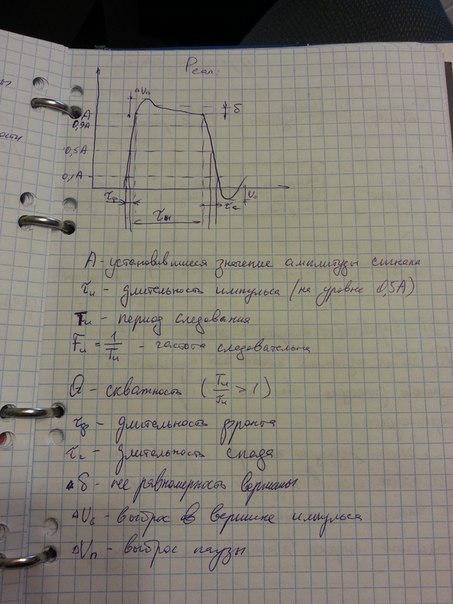 Реал.
ΔUв
δ
A
0,9A
0,5A
0,1A
τф
τи
τс
U
A - установившиеся значение амплитуды сигнала
τи - длительность импульса (на уровне 0,5A)
Tи - период следования
Fи = 1/Tи - частота
Q - скважность (Tи/τи > 1)
τф - длительность фронта
τс - длительность спада
δ - не равномерность вершины
ΔUв - выброс в вершине импульса
ΔUп - выброс паузы